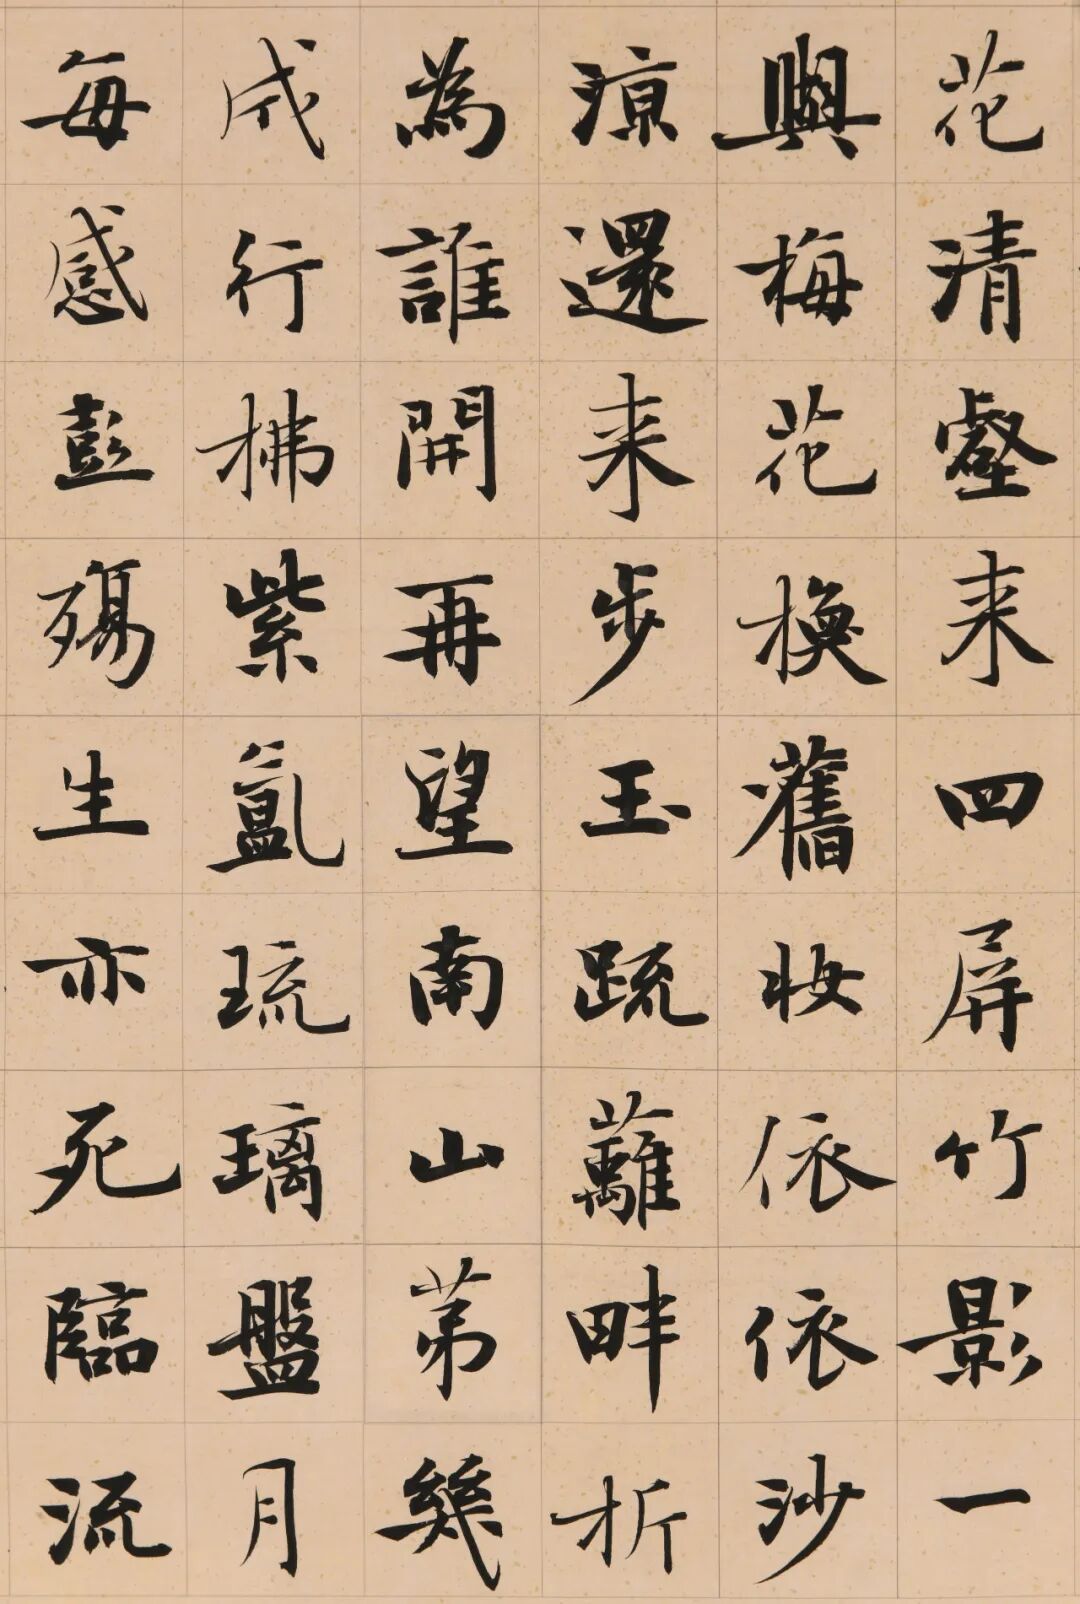 花清壑来四屏竹影一
與梅花換舊妝依依沙
涼還来步玉疏蘺畔折
為誰開再望南山第幾
成行拂紫氳琉璃盤月
每感彭殤生亦死臨流